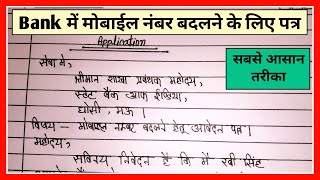 Bank में मोबाईल नंबर बदलने के लिए पत्र
Application
सबसे आसान
तरीका
सेवा में,
श्रीमान शाखा प्रबंधक महोदय,
स्टेट बैंक आफ इंडिया,
घोसी, मऊ।
विषय – मोबाइल नम्बर बदलने हेतु आवेदन पत्र।
महोदय,
सविनय निवेदन है कि मैं रवी सिंह